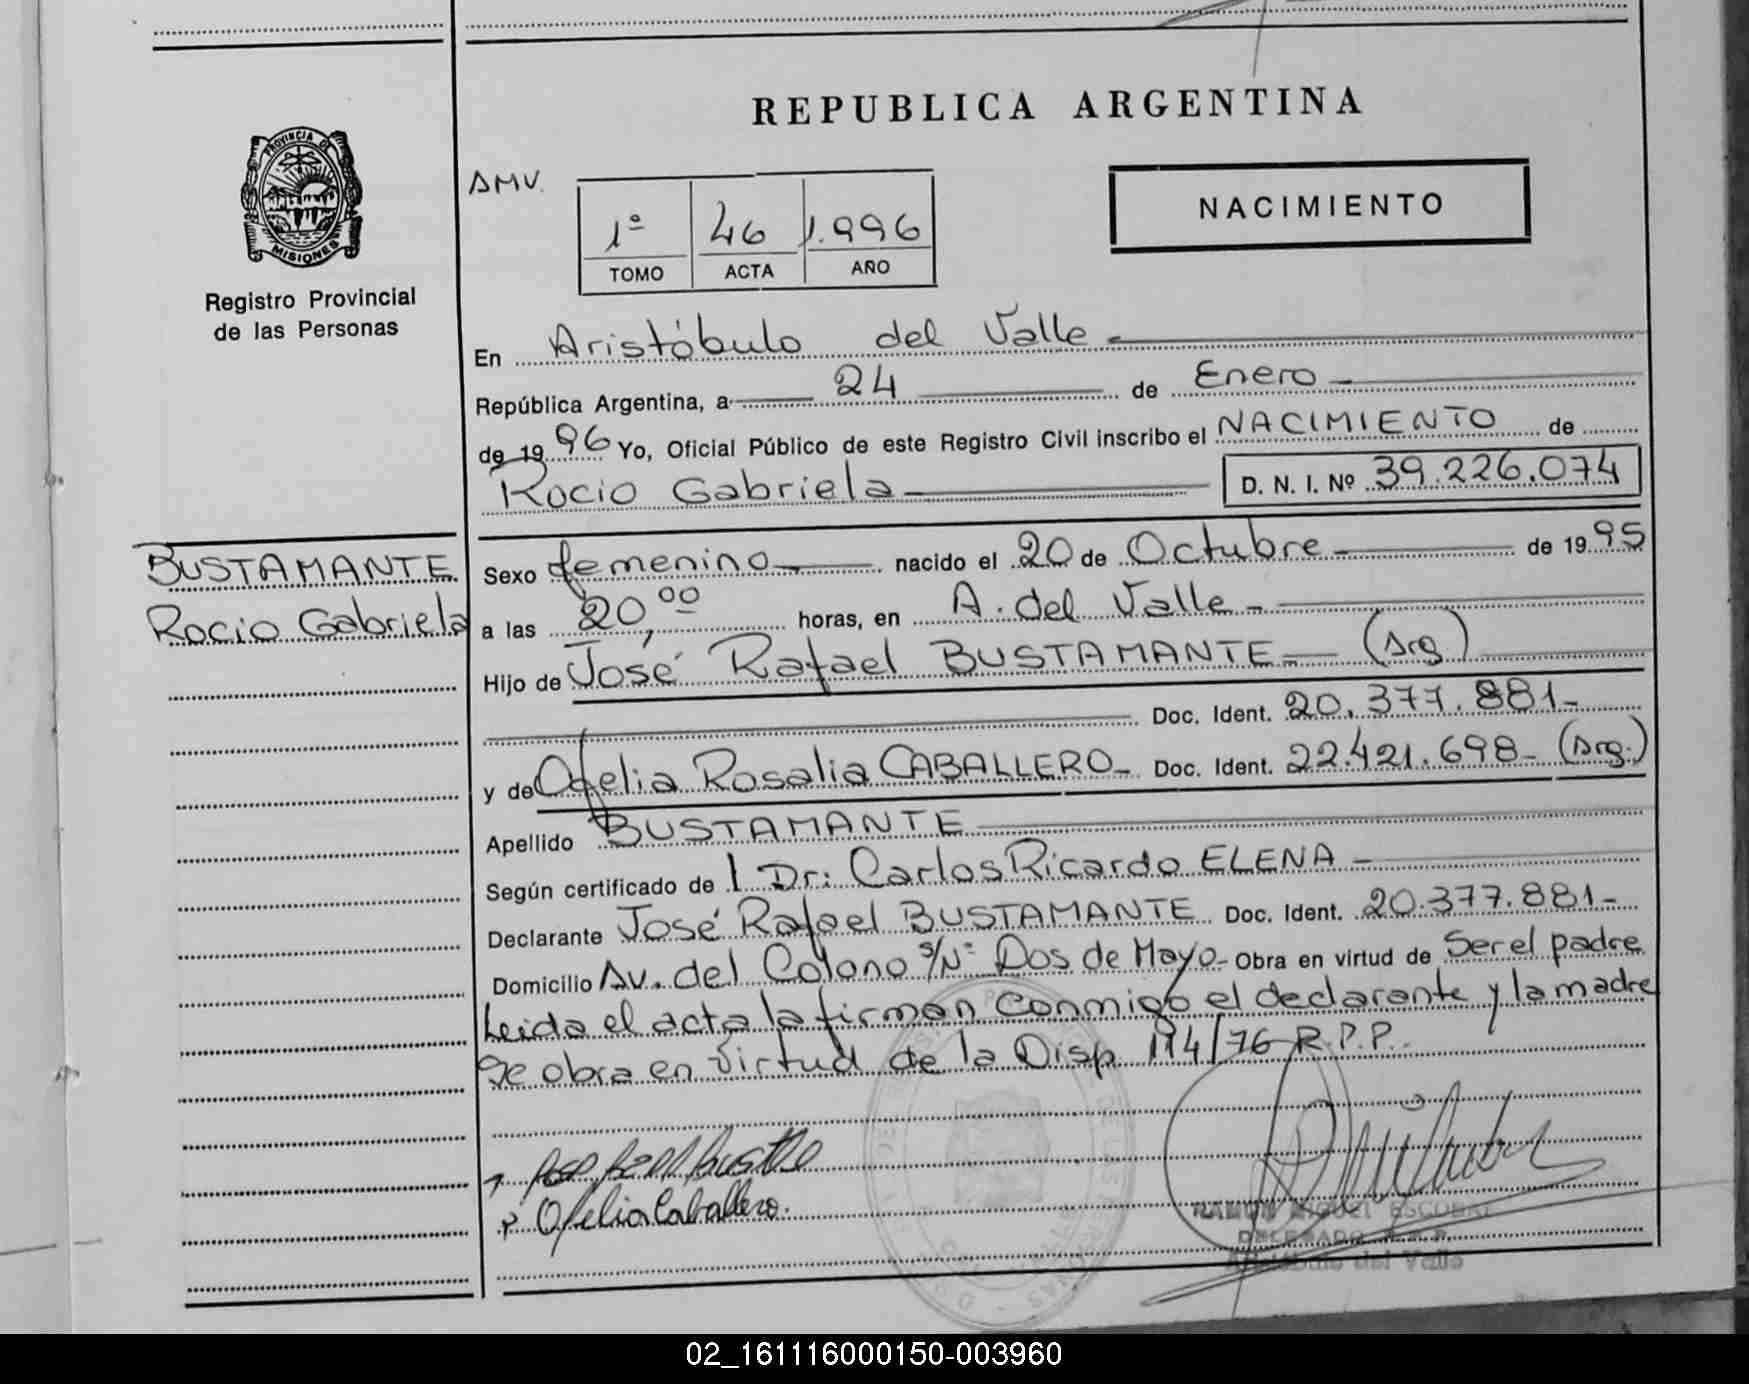 REPUBLICA ARGENTINA
PROVINCIA DE
MISIONES
Registro Provincial
de las Personas
AMV.
1º 46 1.996
TOMO ACTA AÑO
NACIMIENTO
En Aristóbulo del Valle
República Argentina, a 24 de Enero
de 1996 Yo, Oficial Público de este Registro Civil inscribo el NACIMIENTO de
Rocio Gabriela D. N. I. Nº 39.226.074
BUSTAMANTE
Rocio Gabriela
Sexo femenino nacido el 20 de Octubre de 1995
a las 20,00 horas, en A. del Valle
Hijo de José Rafael BUSTAMANTE (Arg)
Doc. Ident. 20.377.881-
y de Ofelia Rosalia CABALLERO Doc. Ident. 22.421.698- (Arg.)
Apellido BUSTAMANTE
Según certificado de 1 Dr: Carlos Ricardo ELENA
Declarante José Rafael BUSTAMANTE Doc. Ident. 20.377.881-
Domicilio Av. del Colono s/Nº Dos de Mayo- Obra en virtud de Ser el padre
Leida el acta la firman conmigo el declarante y la madre
Se obra en virtud de la Disp. 114/76 R.P.P.
Ofelia Caballero.
RAMON MIGUEL ESCOBAR
DELEGADO R.P.P.
Aristóbulo del Valle
02_161116000150-003960